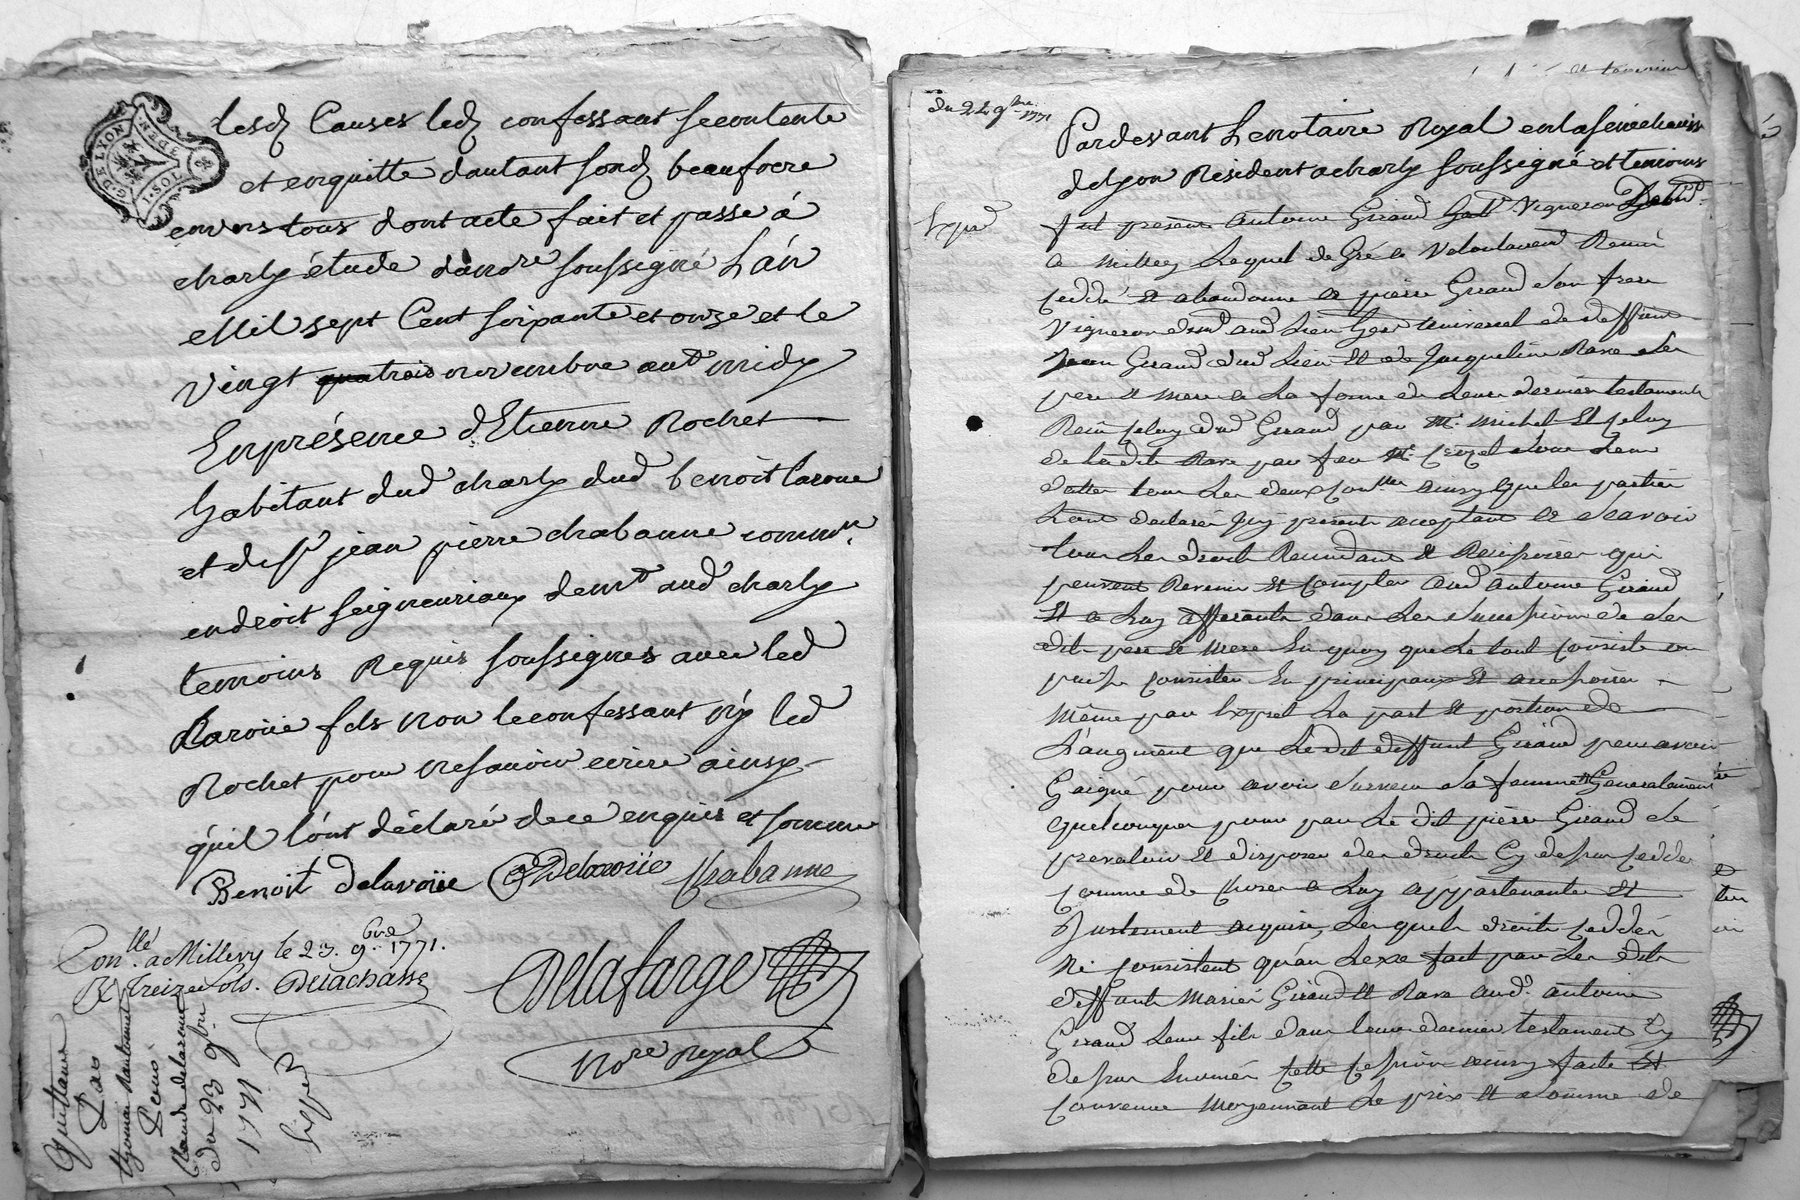 G. DE LYON
I. SOL
3. DEN.
lesd Causes led confessant se contente
et enquitte dautant sond beaufrere
envers tous dont acte fait et passé à
charly étude danore soussigné L'án
Mil sept Cent soixante et onze et le
Vingt quatrois novembre avt midy
En présence d'Etienne Rochet
habitant dud charly dud benoit Laroue
et de sr jean pierre chabanne commre
en droit seigneuriaux demt aud charly
temoins Requis soussignés avec led
Laroüe fils non le confessant ny led
Rochet pour ne savoir ecrire ainsy
qu'il l'ont déclaré de ce enquis et sommé
Benoit delaroüe Delaroüe Chabanne
Conllé a Millery le 23. 9bre 1771.
Rt treize sols. Delachasse
Delafarge
nore royal
Quittance
Pour
Claude delaroue
du 23 9bre
1771
Expéd
du 22 9bre 1771
Pardevant Le notaire Royal en la sénéchaussée
de Lyon Résident a charly soussigné et temoins
Expd
fut présent antoine Giraud Vigneron
a millery Lequel de Gré a Volontairement Remis
ceddé et abandonne a pierre Giraud son frere
Vigneron dud Lieu heritier universel de deffunt
jean Giraud dud Lieu et de Jacqueline Rave ses
pere et mere a La forme de Leurs dernier testaments
Recu celuy dud Giraud par Me Michel et celuy
de Ladite Rave par feu Me
dattes tous Les deux ainsy que les parties
L'ont declaré icy présent acceptant a scavoir
tous Les droits Recindant et Recisoires qui
peuvent Revenir et Competer aud antoine Giraud
et a Luy afferants dans Les successions de ses
dits pere et mere En quoy que Le tout consiste ou
puisse consister En principaux et accessoires
même par Exprès La part et portion de
L'augment que Ledit deffunt Giraud peut avoir
Gaigné pour avoir survecu sa femme et Generalement
quelconques pour par Le dit pierre Giraud se
prevaloir et disposer des droits Cy dessus ceddés
comme de choses a Luy appartenantes et
Justement acquises, Lesquels droits ceddés
ne consistent qu'au Lexe fait par Les dits
deffunts Mariés Giraud et Rave aud. antoine
Giraud Leur fils dans Leurs dernier testament Cy
dessus Enoncés Cette Cession ainsy faite et
convenue moyennant Le prix et somme de